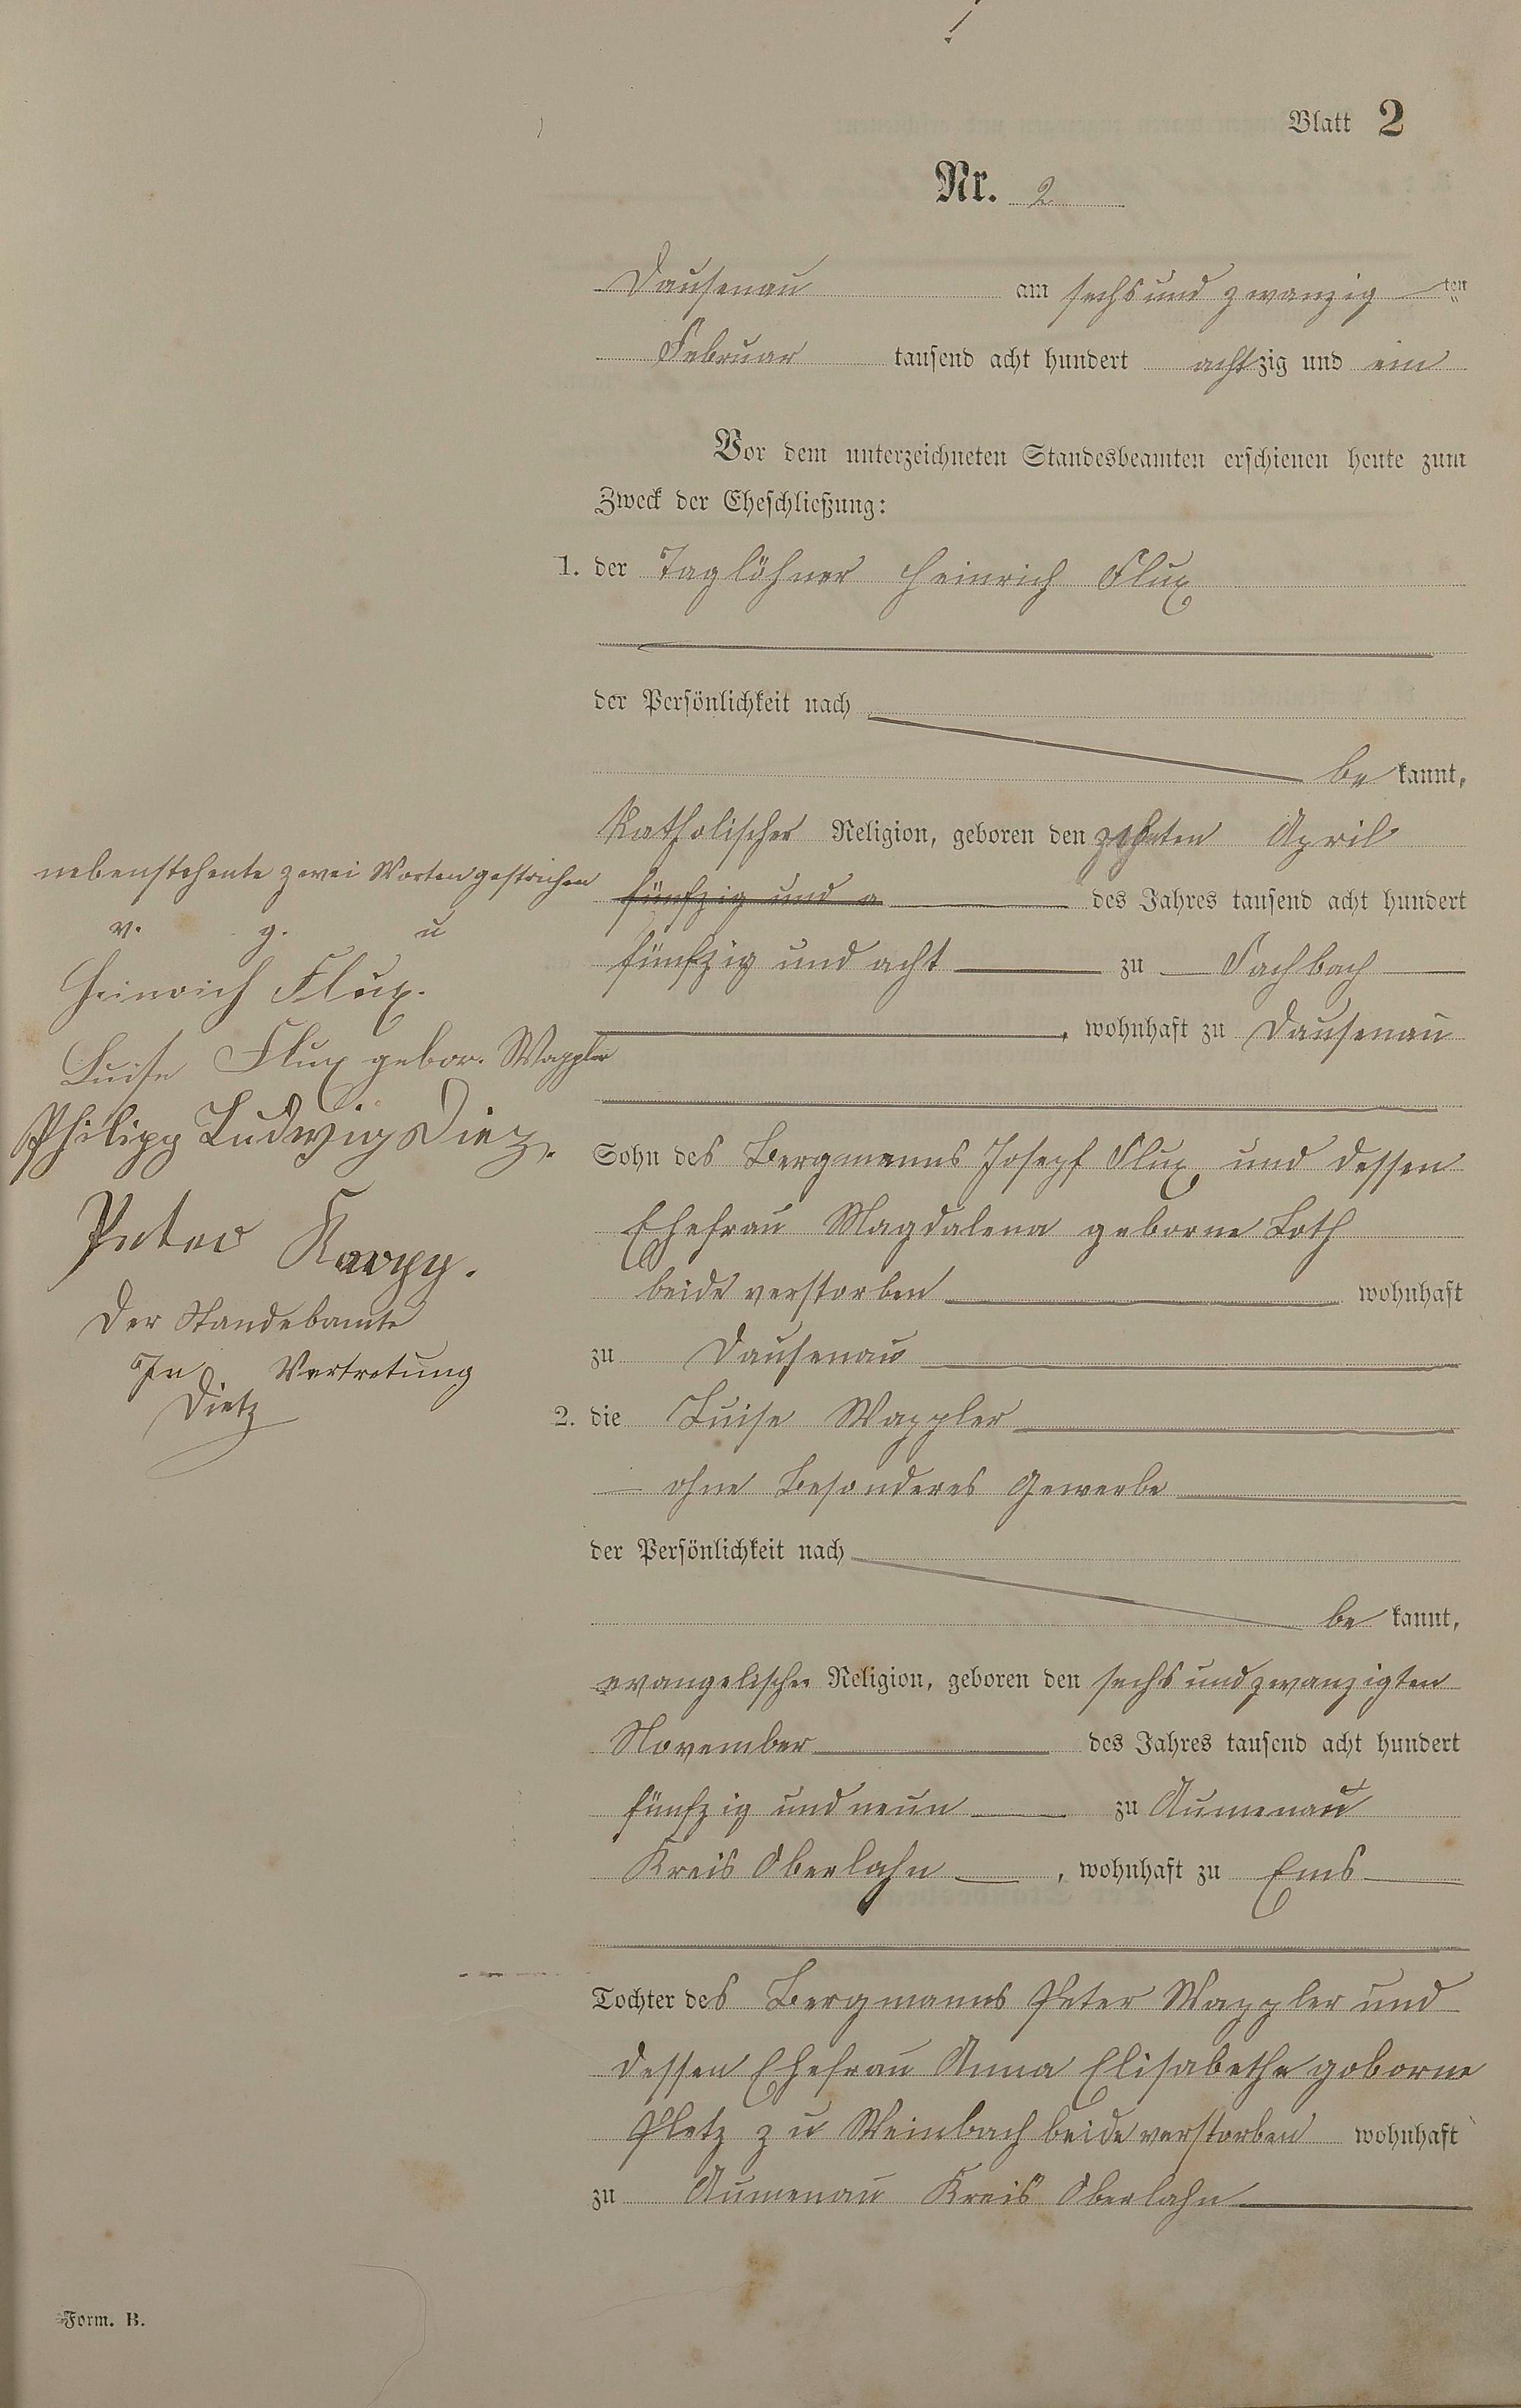 Blatt 2
Nr. 2
Dausenau am sechs und zwanzig ten
Februar tausend acht hundert achtzig und ein
Vor dem unterzeichneten Standesbeamten erschienen heute zum
Zweck der Eheschließung:
1. der Taglöhner Heinrich Flux
der Persönlichkeit nach
be kannt,
Katholischer Religion, geboren den zehnten April
fünfzig und a des Jahres tausend acht hundert
fünfzig und acht zu Fachbach
, wohnhaft zu Dausenau
Sohn des Bergmanns Josepf Flux und dessen
Ehefrau Magdalena geborne Loth
beide verstorben wohnhaft
zu Dausenau
2. die Luise Wappler
ohne besonderes Gewerbe
der Persönlichkeit nach
be kannt,
evangelischer Religion, geboren den sechs und zwanzigten
November des Jahres tausend acht hundert
fünfzig und neun zu Aumenau
Kreis Oberlahn , wohnhaft zu Ems
Tochter des Bergmanns Peter Wappler und
dessen Ehefrau Anna Elisabethe geborne
Pletz zu Weinbach beide verstorben wohnhaft
zu Aumenau Kreis Oberlahn
nebenstehente zwei Worten gestrichen
v. g. u
Heinrich Flux.
Luise Flux gebor. Wappler
Philipp Ludwig Diez.
Peter Karpp.
Der Standebamte
In Vertretung
Dietz
Form. B.